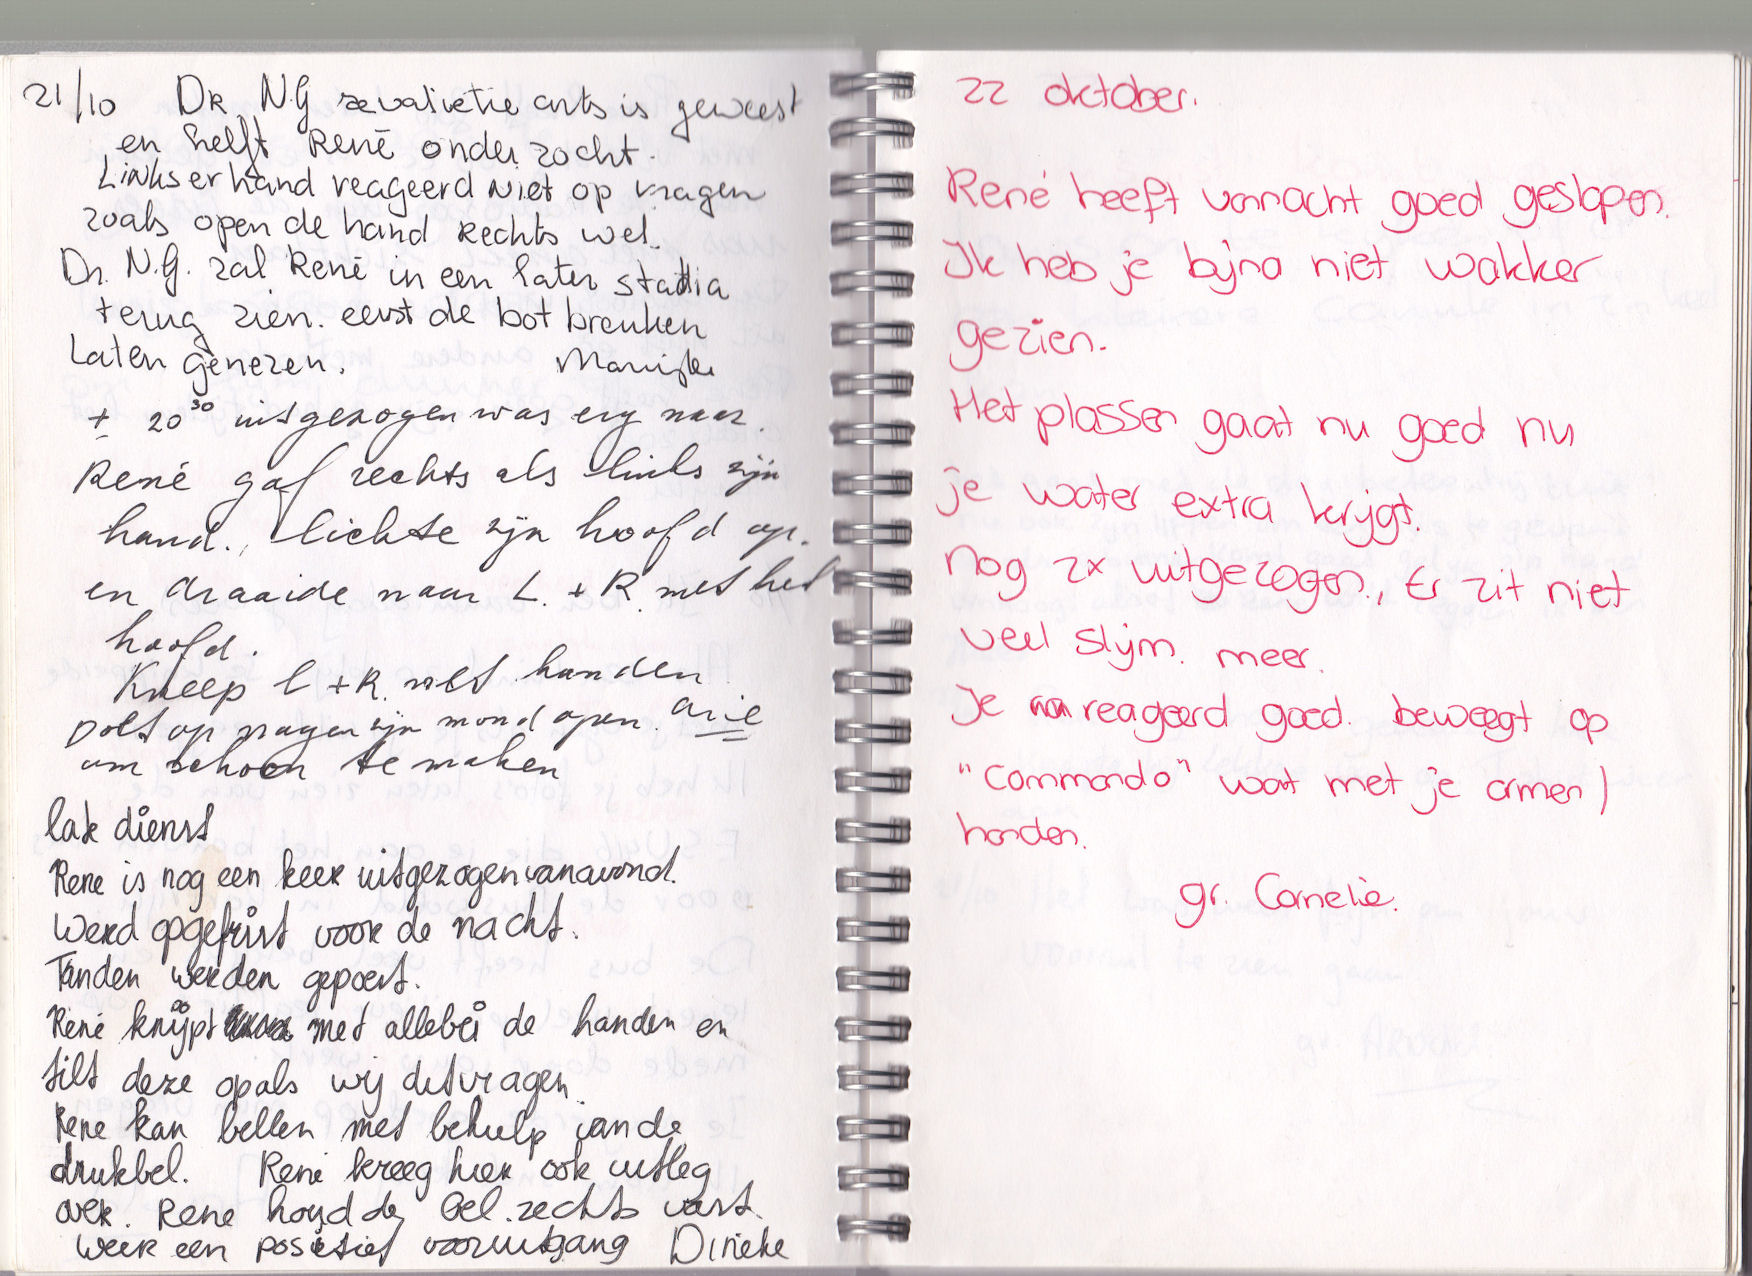 21/10 Dr. N.G revalietie arts is geweest
en helft René onderzocht.
Linkserhand reageerd niet op vragen
zoals open de hand Rechts wel.
Dr. N.G. zal René in een later stadia
terug zien. eerst de bot breuken
Laten genezen. Marijke
± 20³⁰ uitgezogen was erg naar.
René gaf rechts als links zijn
hand., lichte zijn hoofd op.
en draaide naar L. + R. met het
hoofd.
Kneep L + R. met handen
Doet op vragen zijn mond open. Arie
om schoon te maken
late dienst
Rene is nog een keer uitgezogen vanavond.
Werd opgefrist voor de nacht.
Tanden werden gepoest.
René knijpt met allebei de handen en
tilt deze op als wij dit vragen.
Rene kan bellen met behulp van de
drukbel. René kreeg hier ook uitleg
over. Rene houd de bel rechts vast.
Weer een positief vooruitgang Dineke
22 oktober.
René heeft vannacht goed geslapen.
Ik heb je bijna niet wakker
gezien.
Het plassen gaat nu goed nu
je water extra krijgt.
nog 2x uitgezogen, Er zit niet
veel slijm. meer.
Je reageerd goed. beweegt op
"Commando" wat met je armen /
handen.
gr. Cornelie.